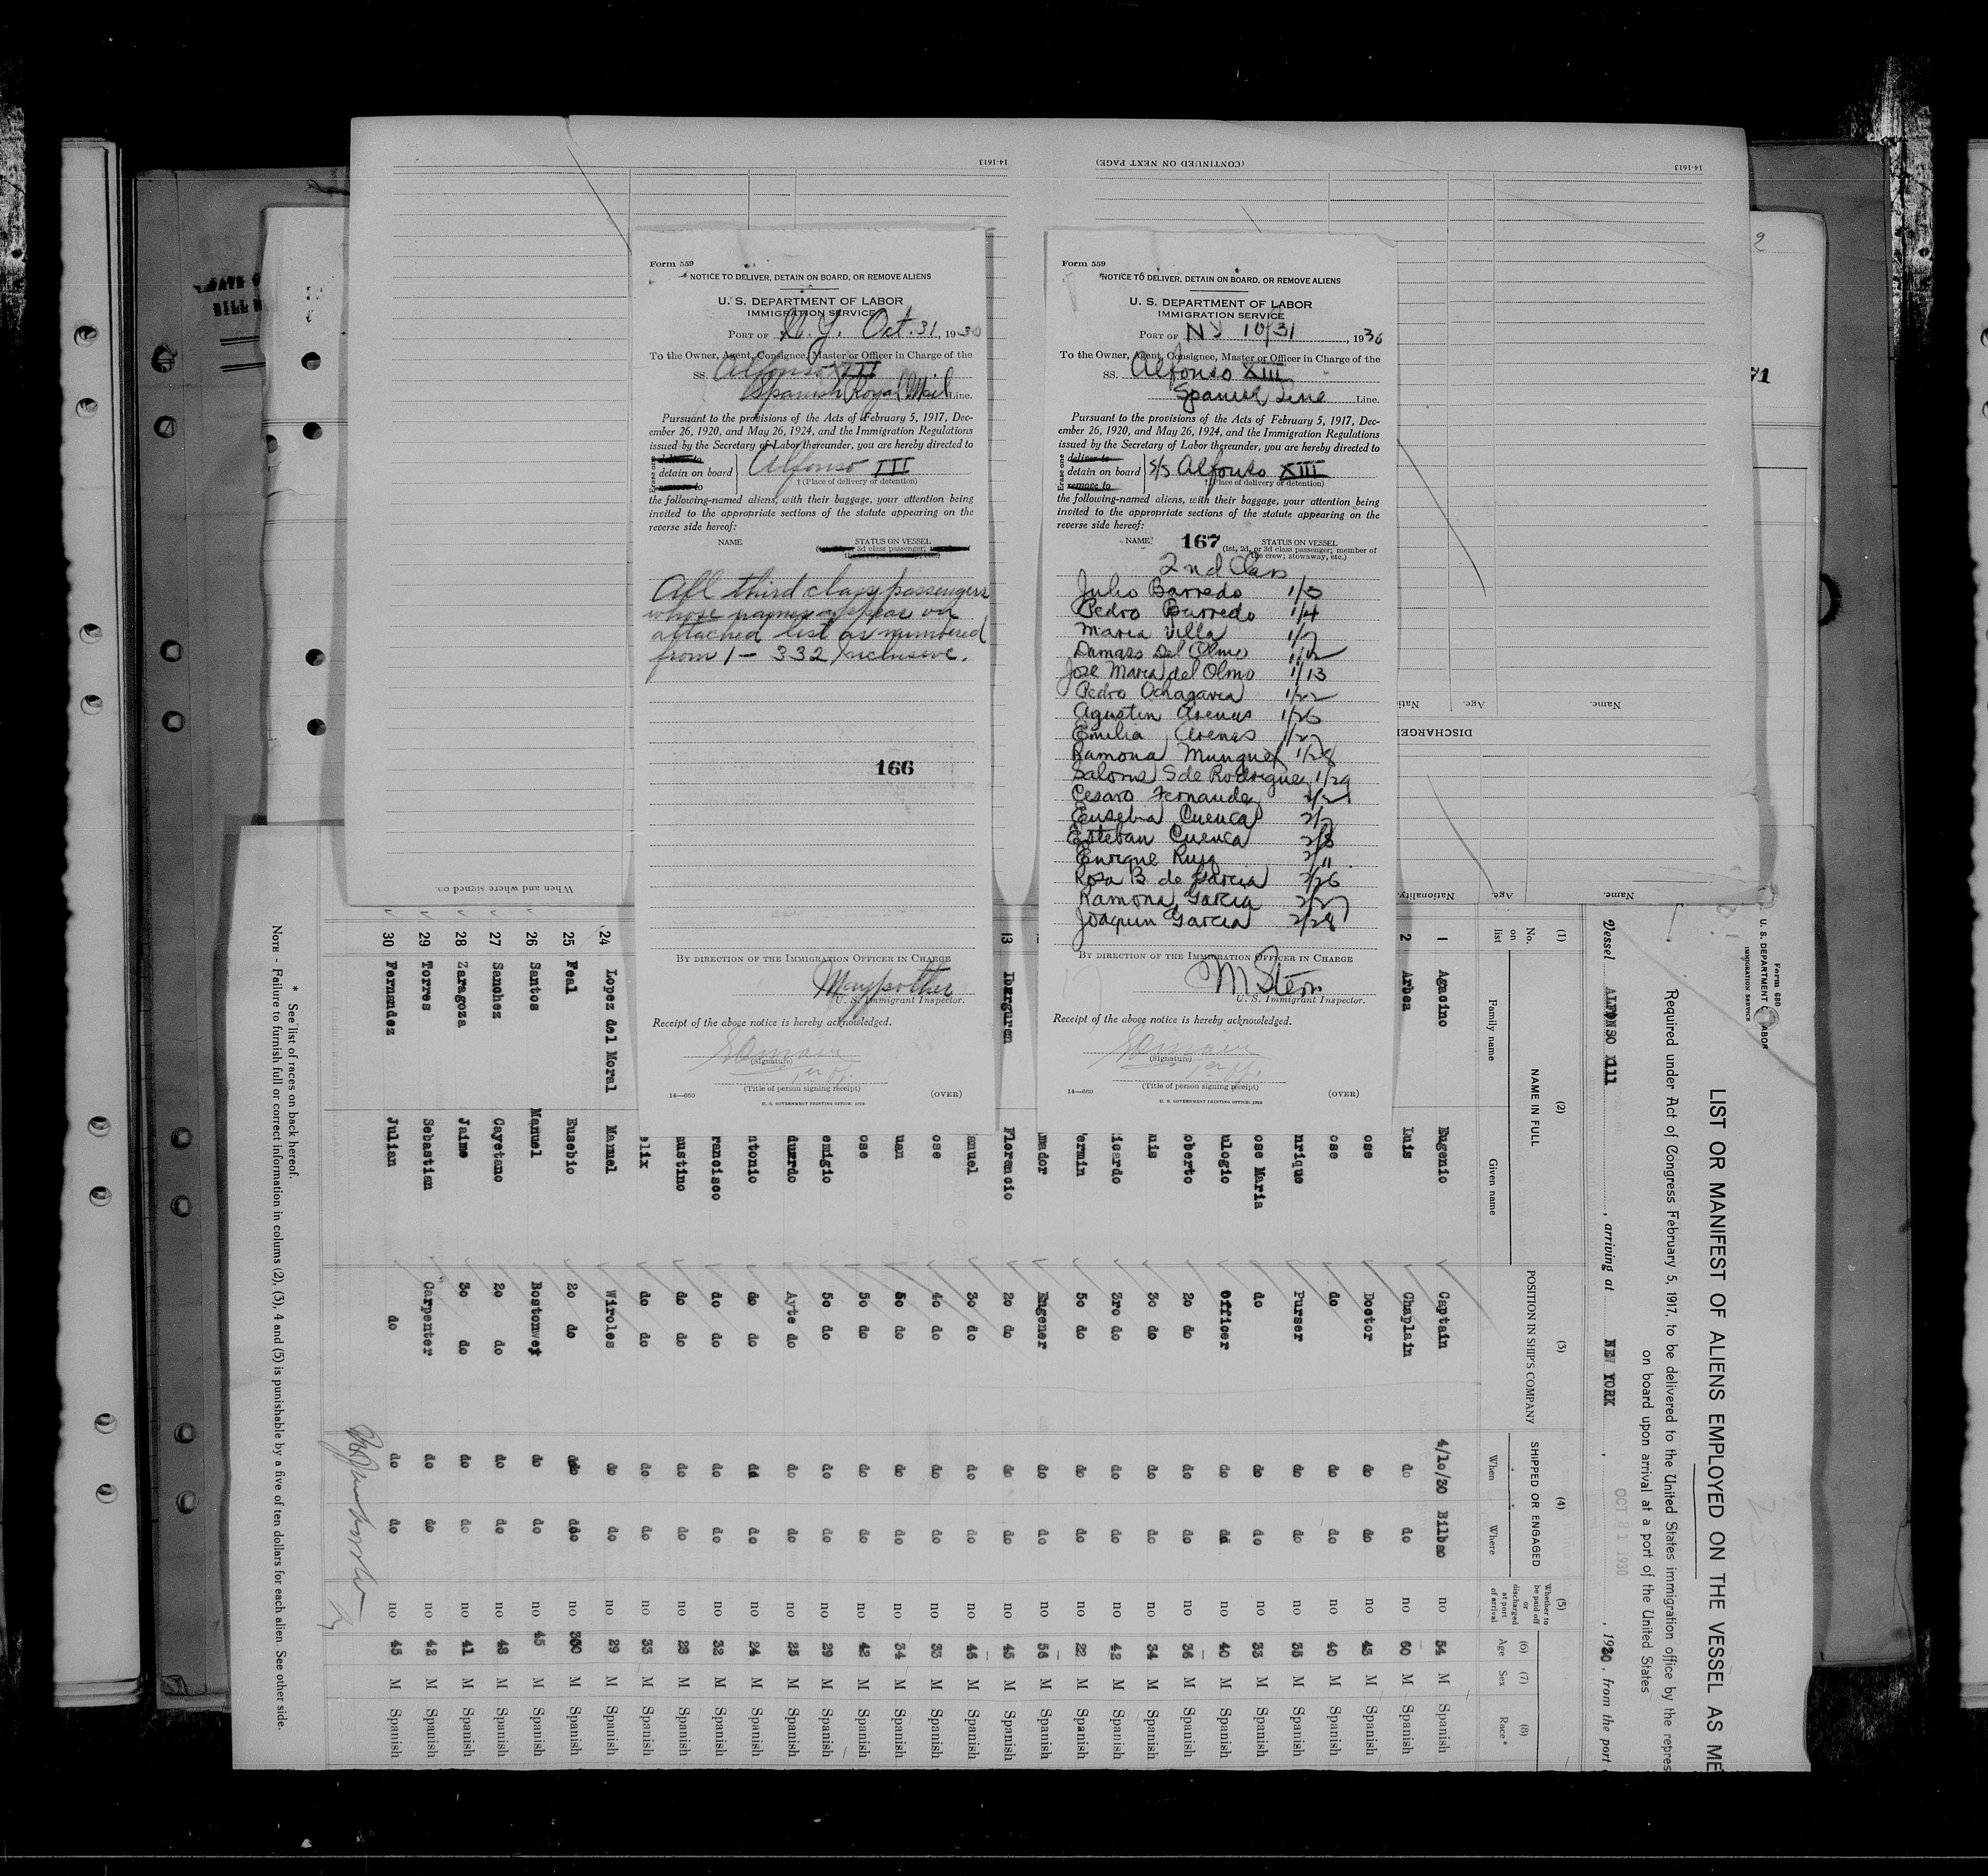 14-1613
(CONTINUED ON NEXT PAGE)
14-1613
2
71
DATE
BILL
Form 559
NOTICE TO DELIVER, DETAIN ON BOARD, OR REMOVE ALIENS
U. S. DEPARTMENT OF LABOR
IMMIGRATION SERVICE
PORT OF N.Y. Oct. 31, 1930
To the Owner, Agent, Consignee, Master or Officer in Charge of the
SS. Alfonso XIII
Spanish Royal Mail Line.
Pursuant to the provisions of the Acts of February 5, 1917, Dec-
ember 26, 1920, and May 26, 1924, and the Immigration Regulations
issued by the Secretary of Labor thereunder, you are hereby directed to
Erase one
deliver to
detain on board
remove to
Alfonso III
† (Place of delivery or detention)
the following-named aliens, with their baggage, your attention being
invited to the appropriate sections of the statute appearing on the
reverse side hereof:
NAME
STATUS ON VESSEL
(1st, 2d, or 3d class passenger; member of
the crew; stowaway, etc.)
All third class passengers
whose names appear on
attached list as numbered
from 1 - 332 Inclusive.
166
BY DIRECTION OF THE IMMIGRATION OFFICER IN CHARGE
U. S. Immigrant Inspector.
Receipt of the above notice is hereby acknowledged.
(Signature)
1er Of.
(Title of person signing receipt)
14—660
(OVER)
Form 559
NOTICE TO DELIVER, DETAIN ON BOARD, OR REMOVE ALIENS
U. S. DEPARTMENT OF LABOR
IMMIGRATION SERVICE
PORT OF NY 10/31, 1930
To the Owner, Agent, Consignee, Master or Officer in Charge of the
SS. Alfonso XIII
Spanish Line Line.
Pursuant to the provisions of the Acts of February 5, 1917, Dec-
ember 26, 1920, and May 26, 1924, and the Immigration Regulations
issued by the Secretary of Labor thereunder, you are hereby directed to
Erase one
deliver to
detain on board
remove to
S/S Alfonso XIII
† (Place of delivery or detention)
the following-named aliens, with their baggage, your attention being
invited to the appropriate sections of the statute appearing on the
reverse side hereof:
NAME
167
STATUS ON VESSEL
(1st, 2d, or 3d class passenger; member of
the crew; stowaway, etc.)
2nd Class
Julio Barredo 1/3
Pedro Barredo 1/4
Maria Villa 1/7
Damaso Del Olmo 1/12
Jose Maria del Olmo 1/13
Pedro Ochagavia 1/22
Agustin Arenas 1/26
Emilia Arenas 1/27
Ramona Munguel 1/28
Salome S de Rodriguez 1/29
Cesaro Fernandez
Eusebia Cuenca 2/7
Esteban Cuenca 2/8
Enrique Ruiz 2/11
Rosa B. de Garcia 2/26
Ramona Garcia 2/27
Joaquin Garcia 2/28
BY DIRECTION OF THE IMMIGRATION OFFICER IN CHARGE
M Stern
U. S. Immigrant Inspector.
Receipt of the above notice is hereby acknowledged.
(Signature)
1er Of.
(Title of person signing receipt)
14—660
(OVER)
Name.
Age.
Nati
DISCHARGE
Name.
Age.
Nationality.
When and where signed on.
Form 680
U. S. DEPARTMENT OF LABOR
IMMIGRATION SERVICE
LIST OR MANIFEST OF ALIENS EMPLOYED ON THE VESSEL AS ME
Required under Act of Congress February 5, 1917, to be delivered to the United States immigration office by the repres
on board upon arrival at a port of the United States
Vessel ALFONSO XIII, arriving at NEW YORK, OCT 31 1930, 1930, from the port
(1) (2) (3) (4) (5) (6) (7) (8)
No. on list
NAME IN FULL
Family name
Given name
POSITION IN SHIP'S COMPANY
SHIPPED OR ENGAGED
When
Where
Whether to be paid off or discharged at port of arrival
Age
Sex
Race*
1 Agacino Eugenio Captain 4/10/30 Bilbao no 54 M Spanish
2 Arbea Luis Chaplain do do no 60 M Spanish
ose Doctor do do no 43 M Spanish
ose do do do no 40 M Spanish
nrique Purser do do no 35 M Spanish
ose Maria do do do no 33 M Spanish
ulogio Officer do dd no 40 M Spanish
oberto 2o do do do no 36 M Spanish
uis 3o do do do no 34 M Spanish
icardo 3ro do do do no 42 M Spanish
ermin 5o do do do no 22 M Spanish
mador Engener do do no 56 M Spanish
13 Ibarguren Florencio 2o do do do no 45 M Spanish
anuel 3o do do do no 46 M Spanish
ose 4o do do do no 33 M Spanish
uan 5o do do do no 34 M Spanish
ose 5o do do do no 42 M Spanish
emigio 5o do do do no 29 M Spanish
duardo Ayte do do do no 25 M Spanish
ntonio do do dd do no 24 M Spanish
rancisco do do do do no 32 M Spanish
austino do do do do no 28 M Spanish
elix do do do do no 33 M Spanish
24 Lopez del Moral Manuel Wiroles do do no 29 M Spanish
25 Feal Eusebio 2o do ddo ddo no 300 M Spanish
26 Santos Manuel Bostonwey do do no 45 M Spanish
27 Sanchez Cayetano 2o do do do no 48 M Spanish
28 Zaragoza Jaime 3o do do do no 41 M Spanish
29 Torres Sebastian Carpenter do do no 42 M Spanish
30 Fernandez Julian do do do no 45 M Spanish
* See list of races on back hereof.
NOTE - Failure to furnish full or correct information in colums (2), (3), 4 and (5) is punishable by a five of ten dollars for each alien. See other side.